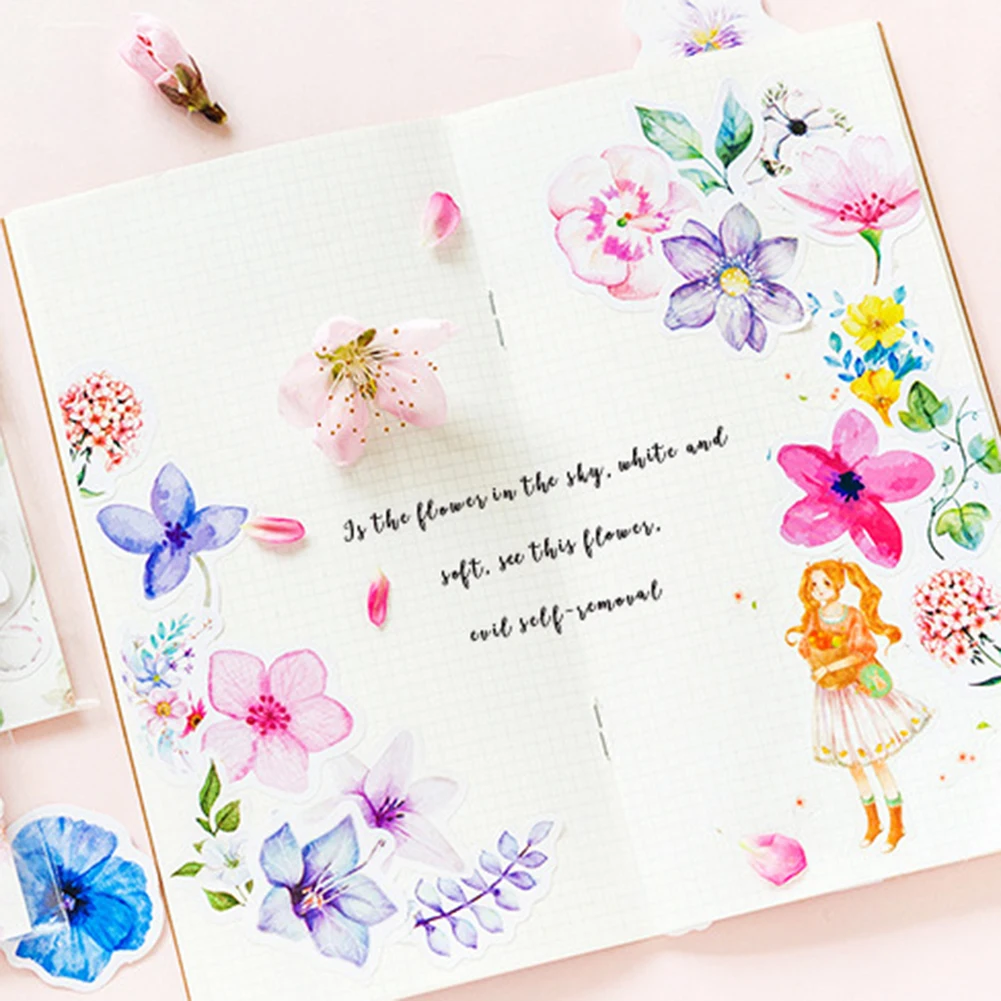 Is the flower in the sky, white and
soft, see this flower,
evil self-removal